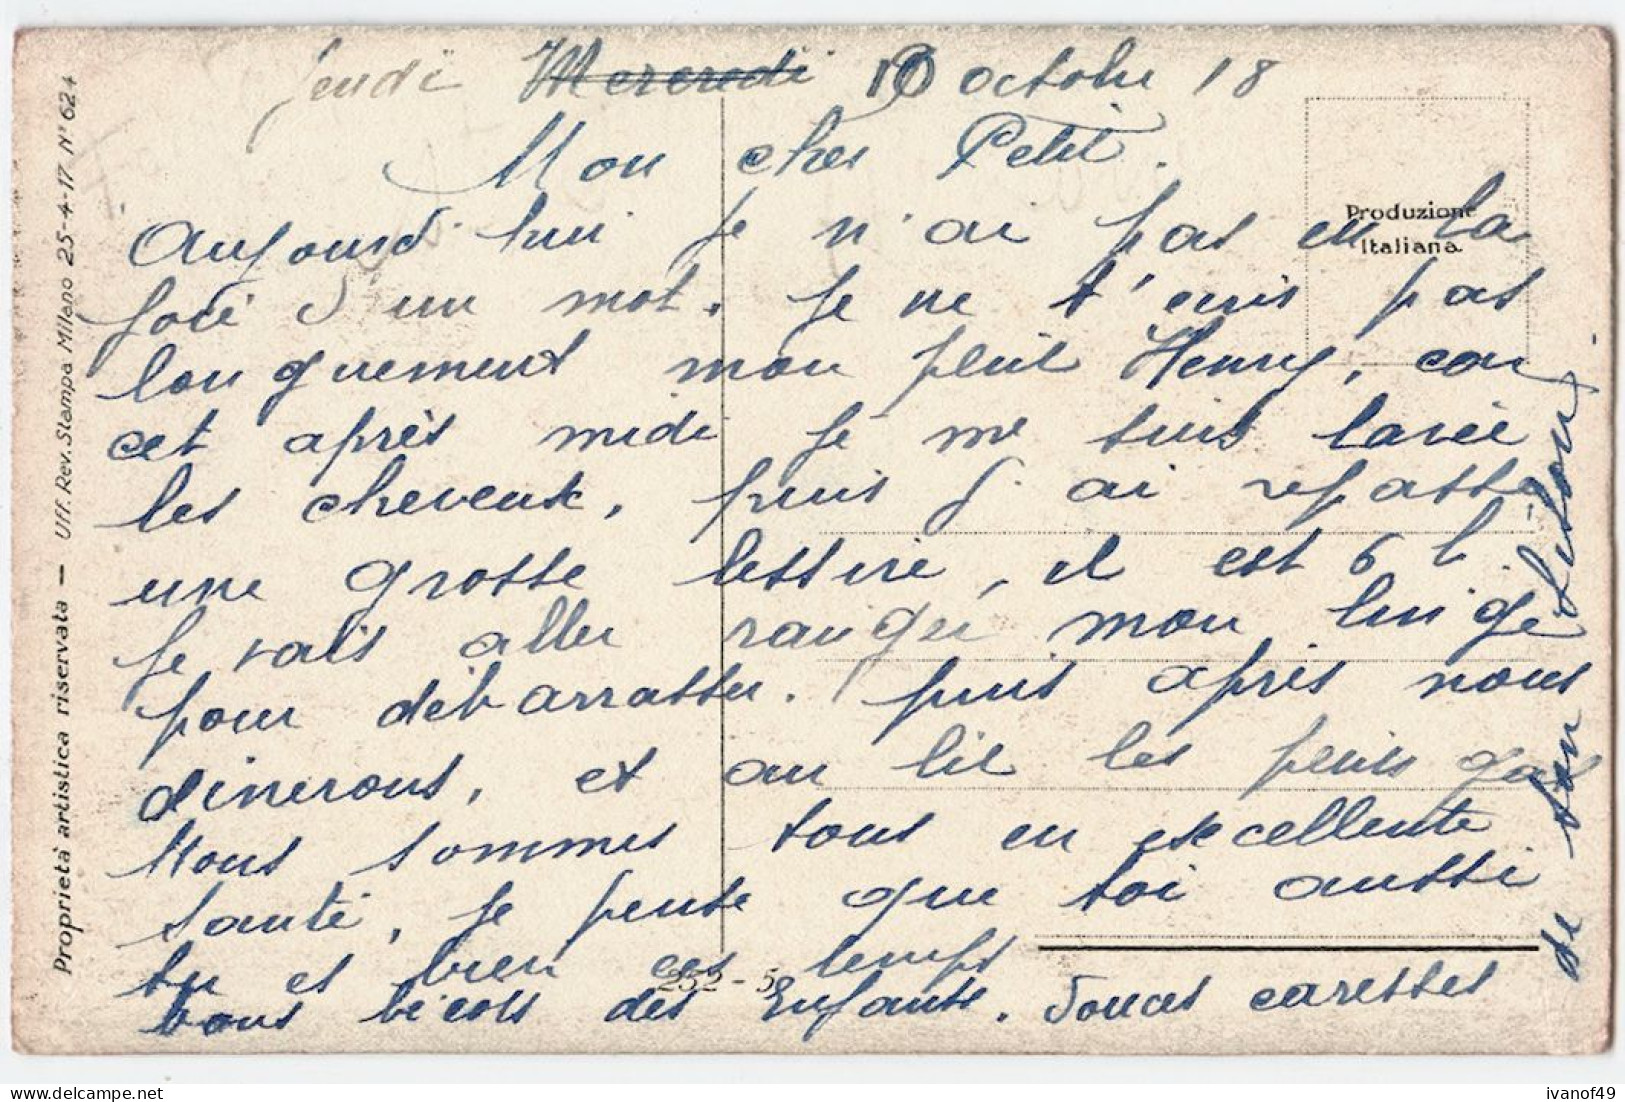 Jeudi Mercredi 10 octobre 18
Mon cher Petit.
Aujourd'hui je n'ai pas eu la
joie d'un mot. Je ne t'ecris pas
longuement mon petit Henry, car
cet après midi je me suis lavée
les cheveux, puis j'ai repassé
une grosse lessive, il est 6 h.
Je vais aller ranger mon linge
pour débarrasser. puis après nous
dinerons, et au lit les petits gas
Nous sommes tous en excellente
santé, je pense que toi aussi
tu es bien ces temps
bons bécots des Enfants. Douces caresses
de ton
Produzione
Italiana
252 - 5
Proprietà artistica riservata — Uff. Rev. Stampa Milano 25-4-17 N° 624
ivanof49